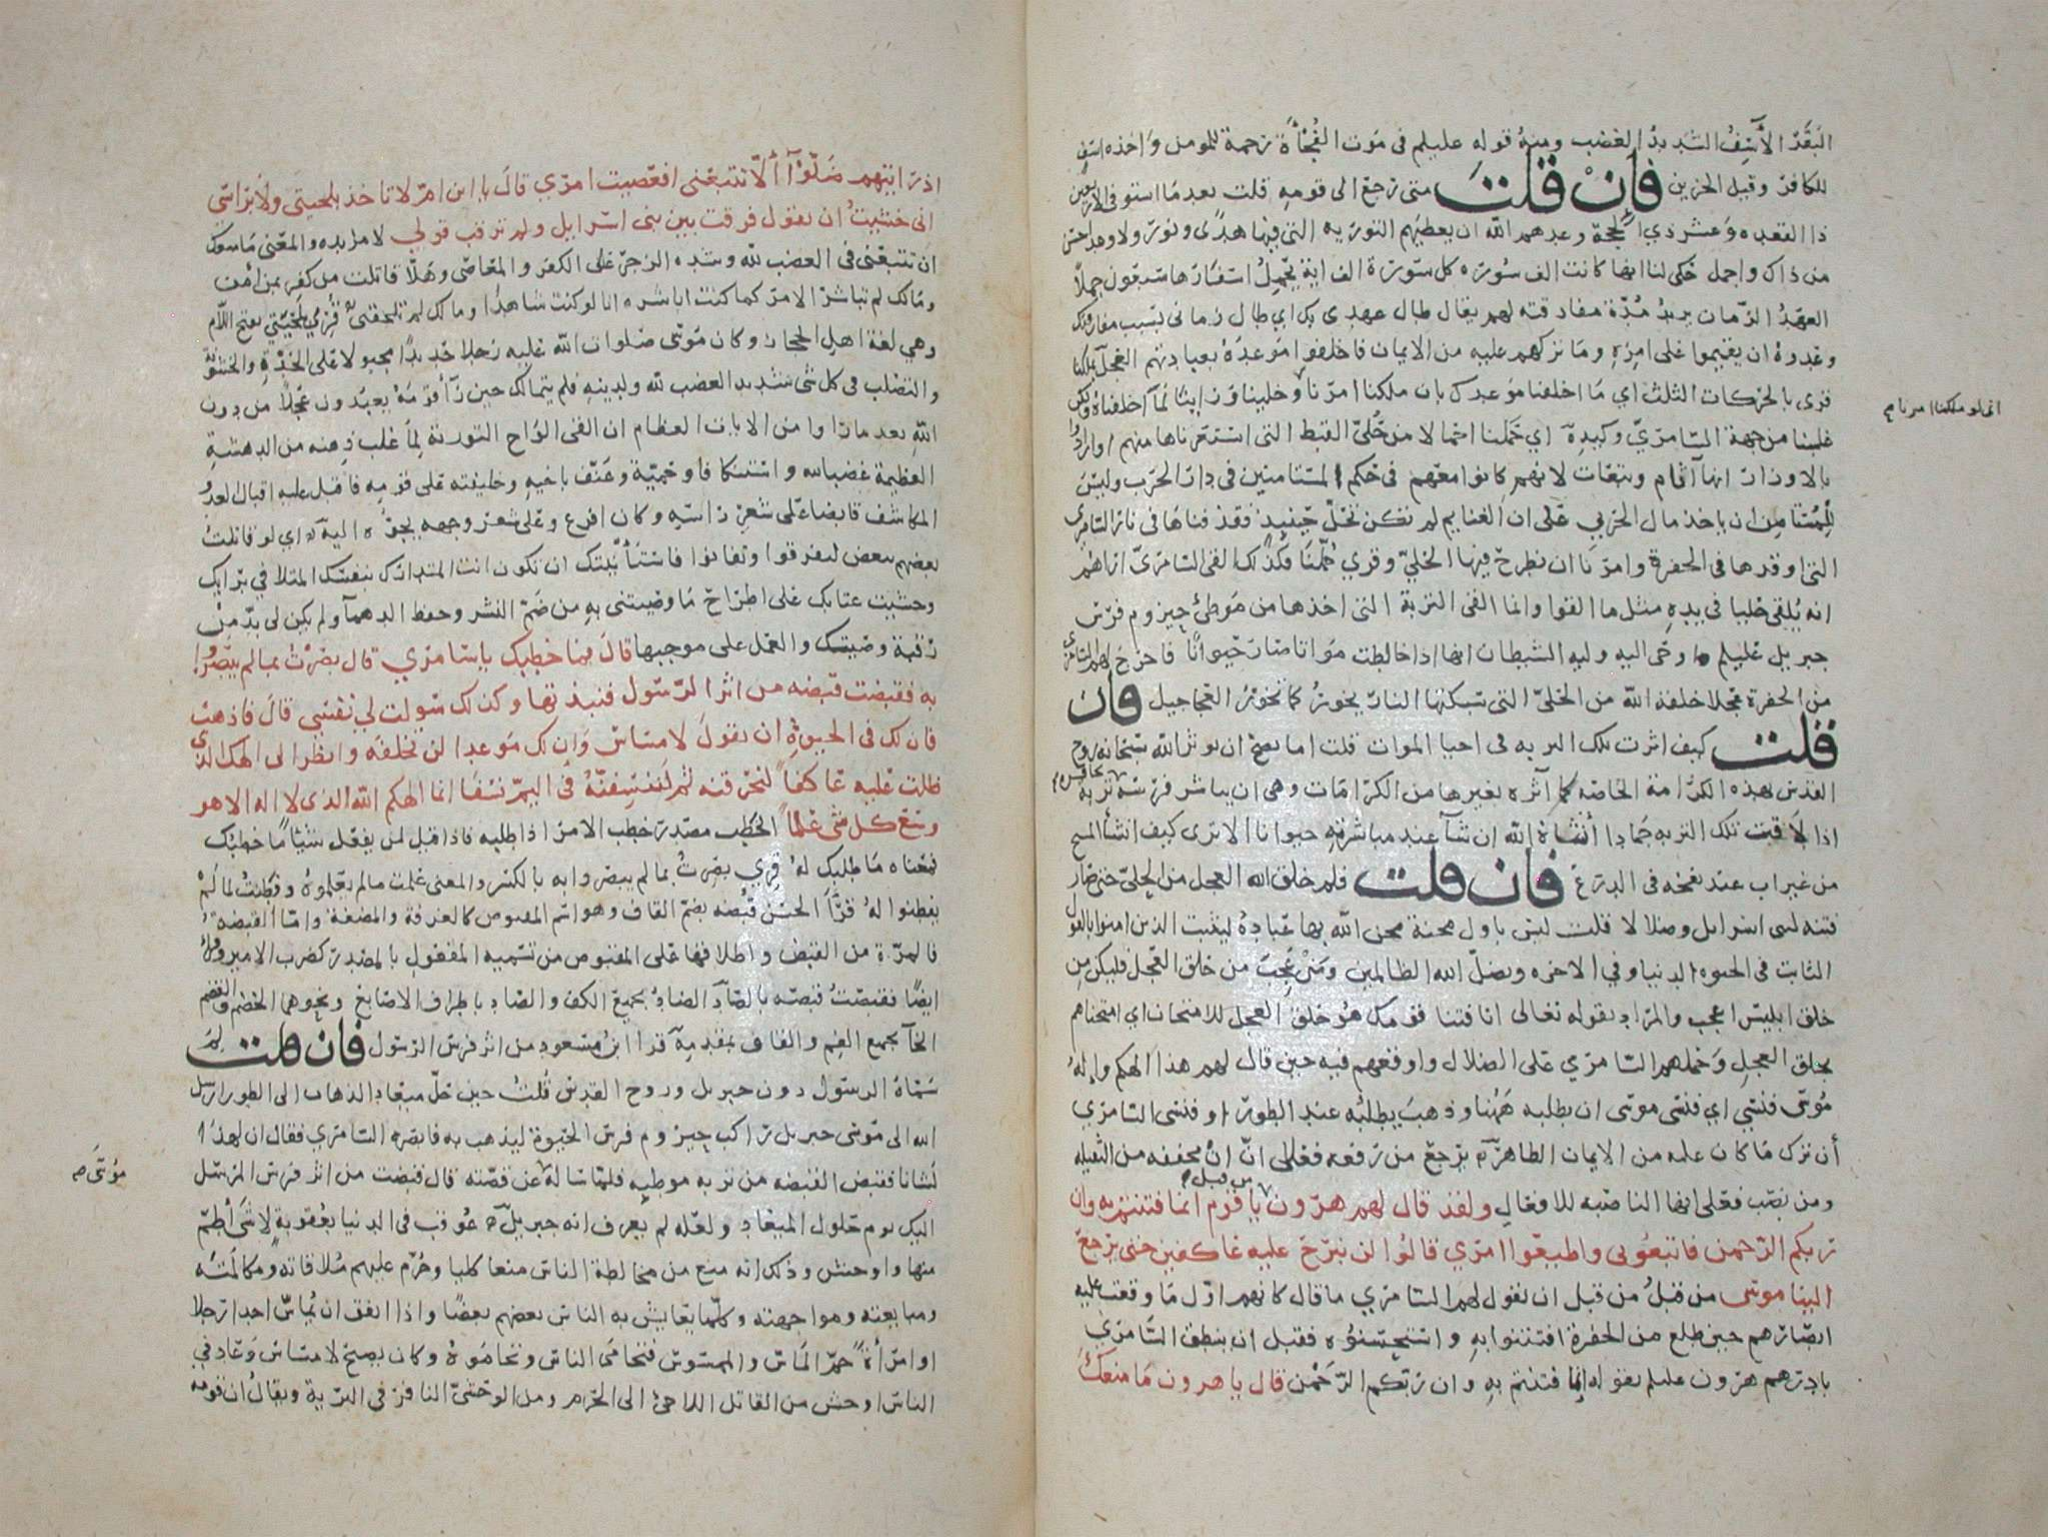 البقر الأسف الشديد الغضب ومنه قوله عليلم في موت الفجأة رحمة للمومن واخذه اسف
للكافر وقيل الحزين فان قلت متى رجع الى قومه قلت بعد ما استوفى الاربعين
ذا القعده وعشر ذي الحجة وعدهم الله ان يعطيهم التوريه التي فيها هدى ونور ولا وعد احسن
من ذاك واجمل حكى لنا انها كانت الف سورة كل سورة الف اية يحمل اسفارها سبعون جملا
العهد الزمان يريد مدة مفارقته لهم يقال طال عهدي بك اي طال زماني بسبب مفارقتك
وعدوه ان يقيموا على امره وما تركهم عليه من الايمان فاخلفوا موعده بعبادتهم العجل بملكنا
قرى بالحركات الثلث اي ما اخلفنا موعدك بان ملكنا امرنا وخلينا وراينا لما اخلفناه ولكن
غلبنا من جهة السامري وكيده اي حملنا احمالا من حلي القبط التي استعرناها منهم وارادوا
بالاوزار انها آثام وتبعات لانهم كانوا معهم في حكم المستامنين في دار الحرب وليس
للمستامن ان ياخذ مال الحربي على ان الغنايم لم تكن تحل حينيذ فقذفناها في نار السامري
التي اوقدها في الحفرة وامرنا ان نطرح فيها الحلي وقري حملنا فكذلك القى السامري اراهم
انه يلقي حليا في يده مثل ما القوا وانما القى التربة التي اخذها من موطئ حيزوم فرس
جبريل عليلم وحى اليه وليه الشيطان انها اذا خالطت مواتا صار حيوانا فاخرج لهم السامري
من الحفرة عجلا خلقه الله من الحلي التي سبكتها النار يخور كما تخور العجاجيل فان
قلت كيف اثرت تلك التربه في احيا الموات قلت اما يصح ان يوثر الله سبحانه روح
القدس بهذه الكرامة الخاصه كما آثره بغيرها من الكرامات وهي ان يباشر فرسه بحافره تربه
اذا لاقت تلك التربه جمادا أنشأه الله ان شآ عند مباشرته حيوانا الا ترى كيف انشأ المسيح
من غير اب عند نفخه في الدرع فان قلت فلم خلق الله العجل من الحلي حتى صار
فتنه لبنى اسرايل وضلالا قلت ليس باول محنة محن الله بها عباده ليثبت الذين امنوا بالقول
الثابت في الحيوه الدنيا وفي الاخره ويضل الله الظالمين ومن عجب من خلق العجل فليكن من
خلق ابليس اعجب والمراد بقوله تعالى انا فتنا قومك هو خلق العجل للامتحان اي امتحناهم
بخلق العجل وحملهم السامري على الضلال واوقعهم فيه حين قال لهم هذا الهكم واله
موسى فنسي اي فنسي موسى ان يطلبه ههنا وذهب يطلبه عند الطور او فنسي السامري
أن ترك ما كان عليه من الايمان الظاهر يرجع من رفعه فعلى انّ انْ مخففه من الثقيله
ومن نصب فعلى انها الناصبه للافعال ولقد قال لهم هرون من قبل يا قوم انما فتنتم به وان
ربكم الرحمن فاتبعوني واطيعوا امري قالوا لن نبرح عليه عاكفين حتى يرجع
الينا موسى من قبل من قبل ان يقول لهم السامري ما قال كانهم اول ما وقعت عليه
ابصارهم حين طلع من الحفرة افتتنوا به واستحسنوه فقبل ان ينطق السامري
بادرهم هرون عليلم بقوله إنما فتنتم به وان ربكم الرحمن قال يا هرون ما منعك
انى لو ملكنا امرنا صح
اذ رايتهم ضلوا ألّا تتبعنى افعصيت امري قال يا ابن ام لا تاخذ بلحيتي ولا براسي
انى خشيت ان تقول فرقت بين بنى اسرايل ولم ترقب قولي لا مزيده والمعنى ما منعك
ان تتبعنى في الغضب لله وشده الزجر على الكفر والمعاصي وهلّا قاتلت من كفر بمن امن
ومالك لم تباشر الامر كما كنت اباشره انا لو كنت شاهدا ومالك لم تلحقنى قري بلحيتي بفتح اللام
وهي لغة اهل الحجاز وكان موسى صلوات الله عليه رجلا حديدا مجبولا على الحدة والخشونة
والتصلب في كل شى شديد الغضب لله ولدينه فلم يتمالك حين رآ قومه يعبدون عجلا من دون
الله بعد ما راوا من الايات العظام ان القى الواح التورية لما غلب ذهنه من الدهشة
العظيمة غضبا لله واستنكافا وحمية وعنف باخيه وخليفته على قومه فاقبل عليه اقبال العدو
المكاشف قابضا على شعر راسه وكان افرع وعلى شعر وجهه يجره اليه اي لو قاتلت
بعضهم ببعض لتفرقوا وتفانوا فاستأنيتك ان تكون انت المتدارك بنفسك المتلافي برايك
وخشيت عتابك على اطراح ما وصيتنى به من ضم النشر وحفظ الدهمآ ولم يكن لى بد من
رقبة وصيتك والعمل على موجبها قال فما خطبك يا سامري قال بصرت بما لم يبصروا
به فقبضت قبضه من اثر الرسول فنبذتها وكذلك سولت لي نفسي قال فاذهب
فان لك في الحيوة ان تقول لا مساس وان لك موعدا لن تخلفه وانظر الى الهك الذي
ظلت عليه عاكفا لنحرقنه ثم لننسفنه في اليم نسفا انما الهكم الله الذي لا اله الا هو
وسع كل شي علما الخطب مصدر خطب الامر اذا طلبه فاذا قيل لمن يفعل شيئا ما خطبك
فمعناه ما طلبك له قري بصرت بما لم يبصروا به بالكسر والمعنى علمت ما لم يعلموه وفطنت لما لم
يفطنوا له قرأ الحسن قبضه بضم القاف وهو اسم المقبوض كالغرفة والمضغة واما القبضه
فالمرة من القبض واطلاقها على المقبوض من تسميه المفعول بالمصدر كضرب الامير وقرئ
ايضا فقبصت قبصه بالصاد الضاد بجميع الكف والصاد باطراف الاصابع ونحوهما الخضم والقضم
الخآ بجميع الفم والقاف بمقدمه قرا ابن مسعود من اثر فرس الرسول فان قلت لم
سماه الرسول دون جبريل وروح القدس قلت حين حل ميعاد الذهاب الى الطور ارسل
الله الى موسى جبريل راكب حيزوم فرس الحيوة ليذهب به فابصره السامري فقال ان لهذا
لشانا فقبض القبضه من تربه موطيه فلما ساله عن قصته قال قبضت من اثر فرس المرسل
اليك يوم حلول الميعاد ولعله لم يعرف انه جبريل عوقب في الدنيا بعقوبة لا شى أطم
منها واوحش وذلك انه منع من مخالطة الناس منعا كليا وحرم عليهم ملاقاته ومكالمته
ومبايعته ومواجهته وكلما يعايش به الناس بعضهم بعضا واذا اتفق ان يماس احدا رجلا
او امرأة حمّ الماس والممسوس فتحامى الناس وتحاموه وكان يصيح لا مساس وعاد في
الناس اوحش من القاتل اللاجئ الى الحرم ومن الوحشى النافر في البرية ويقال ان قومه
موسى صح